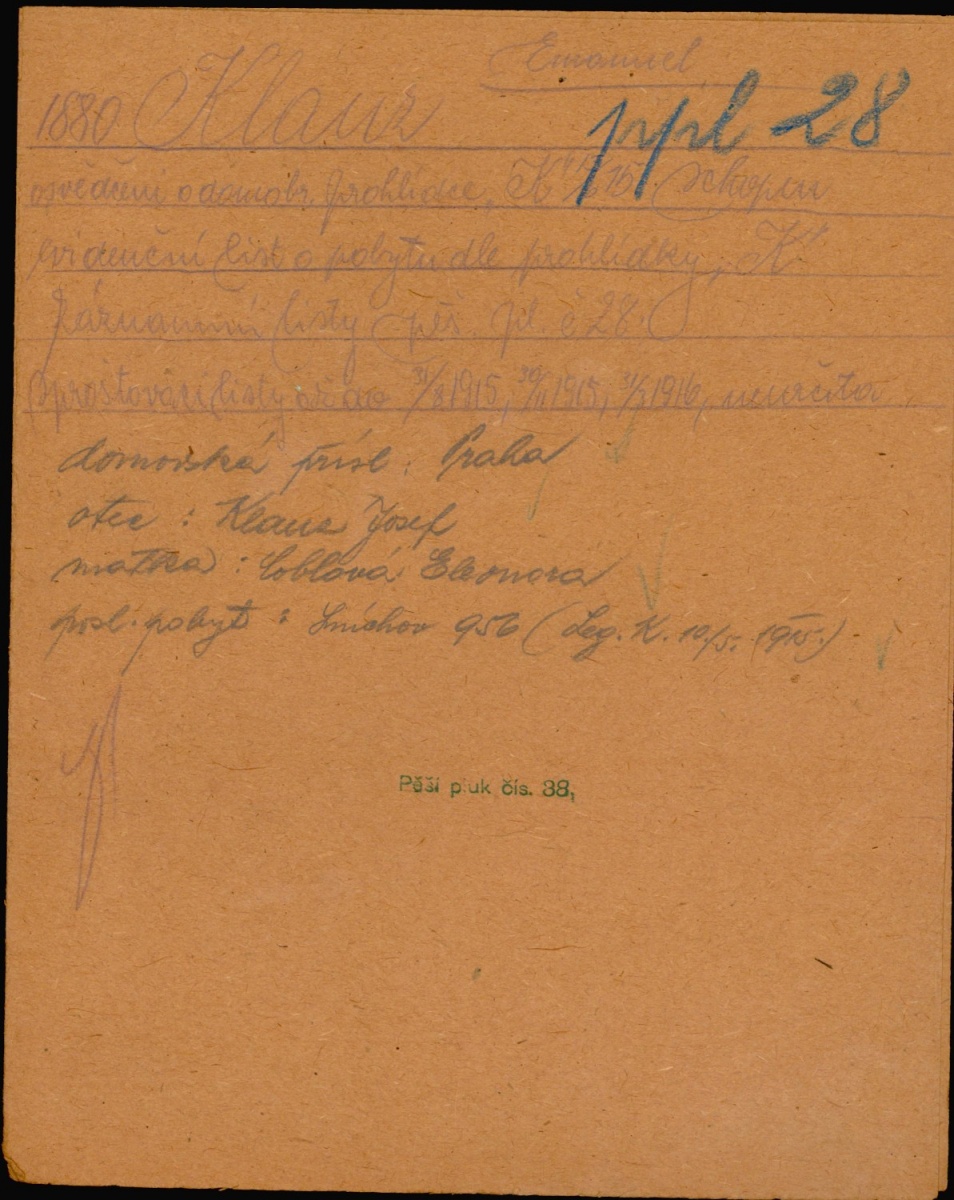 Emanuel
1880 Klauz
ppl 28
osvědčení o domobr. prohlídce, K 15. Schopen
Evidenční list o pobytu dle prohlídky, K
Záznamní listy pěš. pl. č 28.
Sprošťovací listy až do 31/8 1915, 30/11 1915, 31/3 1916, neurčita,
domovská přísl: Praha
otec: Klauz Josef
matka: Coblová Eleonora
posl. pobyt: Smíchov 956 (Leg. K. 10/5. 1915.)
Pěší pluk čís. 88,